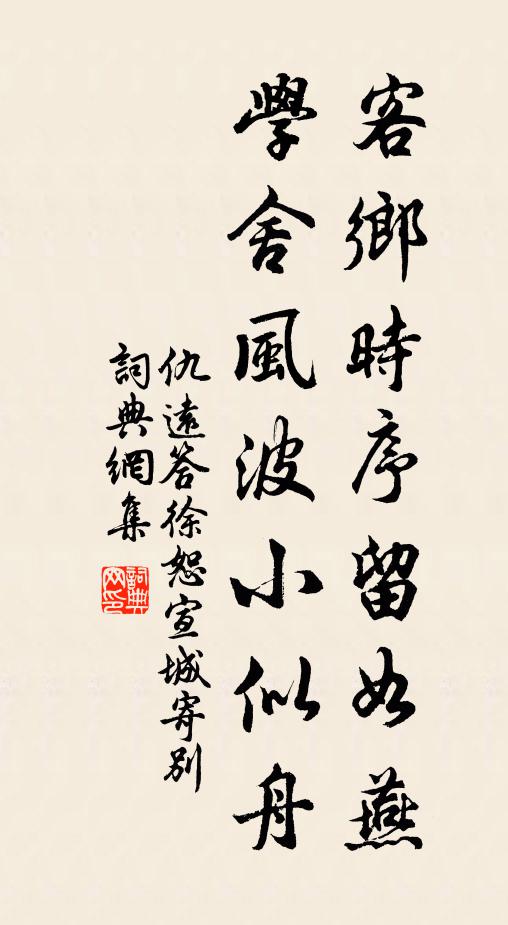 客鄉時序留如燕
學舍風波小似舟
仇遠答徐恕宣城寄別
詞典網集
詞典網印